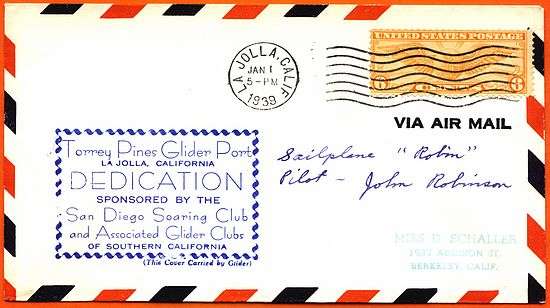 UNITED STATES POSTAGE
6 6
LA JOLLA, CALIF.
JAN 1
5-PM
1939
VIA AIR MAIL
Torrey Pines Glider Port
LA JOLLA, CALIFORNIA
DEDICATION
SPONSORED BY THE
San Diego Soaring Club
and Associated Glider Clubs
OF SOUTHERN CALIFORNIA
(This Cover Carried by Glider)
Sailplane "Robin"
Pilot - John Robinson
MISS D SCHALLER
BERKELEY CALIF.